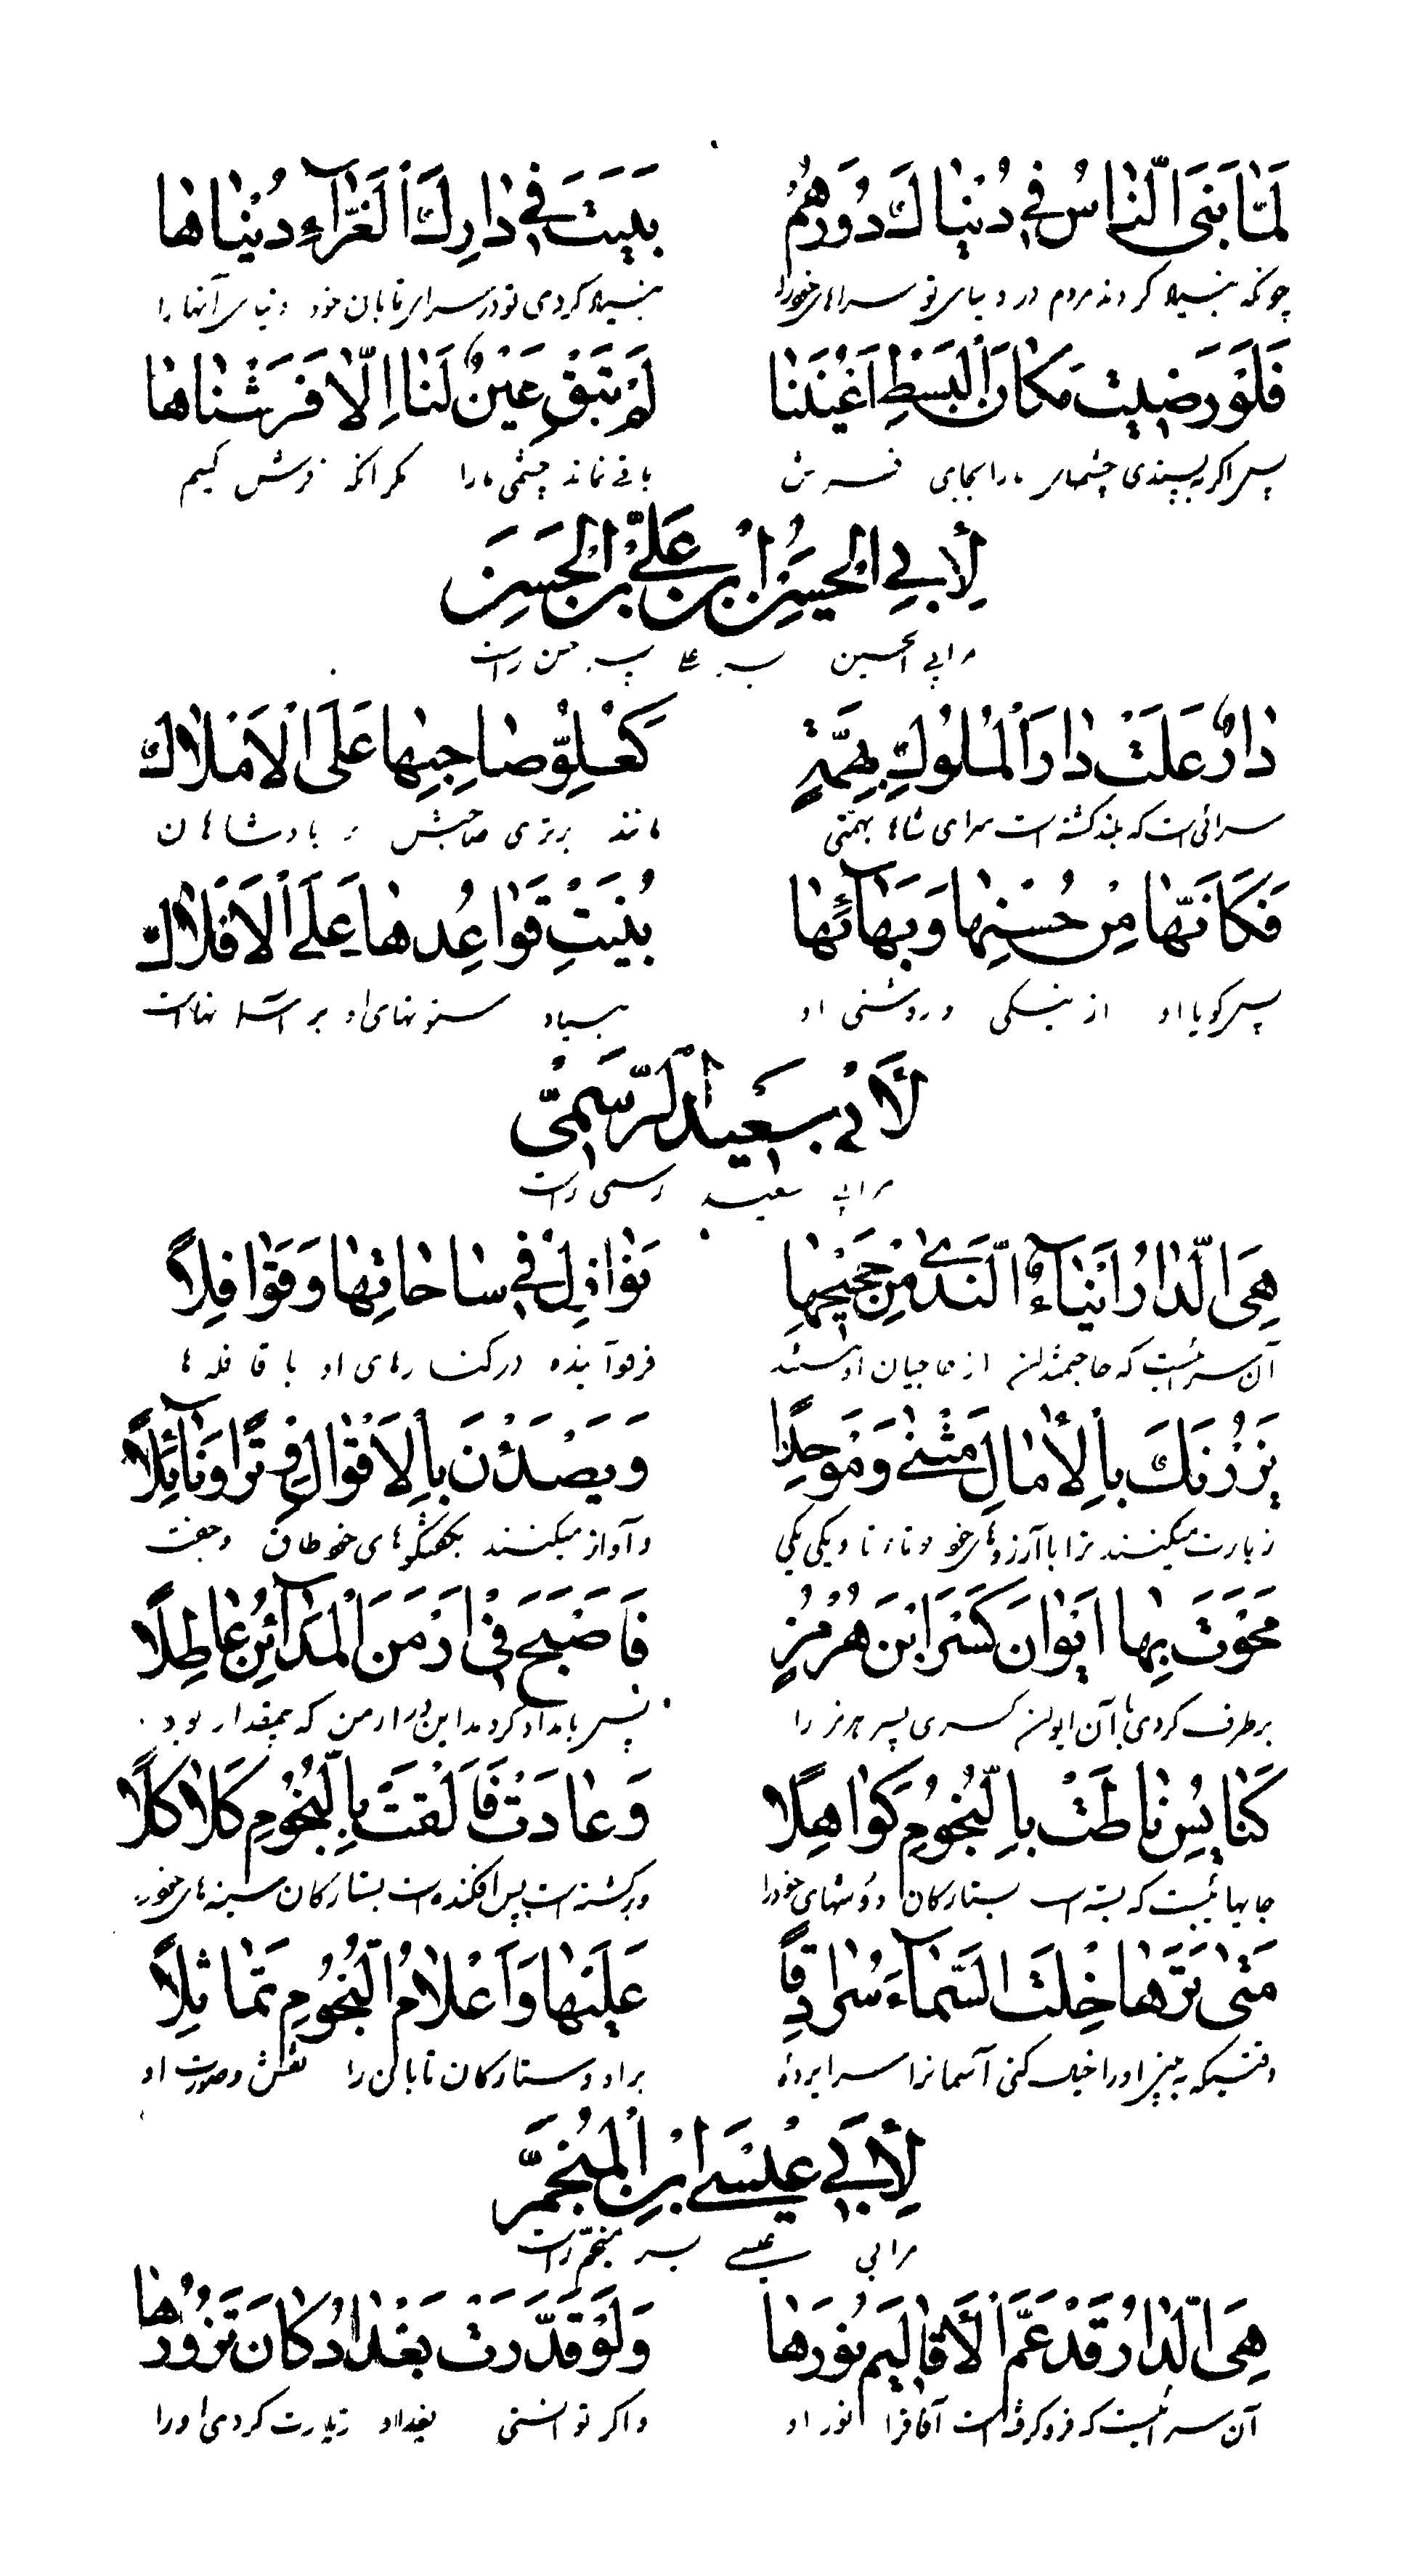 لَمّٰا بَنَى النّٰاسُ فِي دُنْيٰاكَ دُورَهُمُ بَنَيْتَ فِي دٰارِكَ الْغَرّٰآءِ دُنْيٰاهٰا
چونکه بنیلا کردند مردم در دنیای تو سراهای خود را بنیلا کردی تو در سرای تابان خود دنیای آنها را
فَلَوْ رَضِيتَ مَكٰانَ الْبَسْطِ اَعْيُنَنٰا لَمْ تَبْقَ عَيْنٌ لَنٰا اِلّٰا فَرَشْنٰاهٰا
پس اگر بپسندی چشمهای ما را بجای فرش باقی نماند چشمی ما را مگر آنکه فرش کنیم
لِأَبِي الْحُسَيْنِ ابْنِ عَلِيِّ بْنِ الْحَسَنِ
مر ابی الحسین پسر علی پسر حسن راست
دٰارٌ عَلَتْ دٰارَ الْمُلُوكِ بِهِمَّةٍ كَعُلُوِّ صٰاحِبِهٰا عَلَى الْاَمْلٰاكِ
سرائی است که بلند گشته است سرای شاها بهمتی مانند برتری صاحبش بر پادشاهان
فَكَاَنَّهٰا مِنْ حُسْنِهٰا وَبَهٰآئِهٰا بُنِيَتْ قَوٰاعِدُهٰا عَلَى الْاَفْلٰاكِ
پس گویا او از نیکی و روشنی او بنیاد ستونهای او بر آسمانهاست
لِأَبِي سَعِيدٍ الرُّسْتَمِيِّ
مر ابی سعید رستمی راست
هِيَ الدّٰارُ اَبْنٰآءُ النَّدىٰ مِنْ حَجِيجِهٰا نَوٰازِلُ فِي سٰاحٰاتِهٰا وَقَوٰافِلًا
آن سرائیست که از حاجیان او فرود آینده در کنارهای او با قافله ها
يَزُرْنَكَ بِالْاٰمٰالِ مَثْنىٰ وَمَوْحَدًا وَيَصْدُرْنَ بِالْاَمْوٰالِ وَنٰآئِلًا
زیارت میکنند ترا با آرزوهای خود دوتا دوتا و یکی یکی و آواز میکنند بگفتگوهای خود طاق و جفت
مَحَوْتَ بِهٰا اَيْوٰانَ كَسْرَا ابْنَ هُرْمُزٍ فَاَصْبَحَ فِي اَرْضِ الْمَدٰآئِنِ عٰاطِلًا
برطرف کردی با آن ایوان کسری پسر هرمز را پس بامداد کرد که بیمقدار بود
كَنٰايِسُ نٰاطَتْ بِالنُّجُومِ كَوٰاهِلًا وَعٰادَتْ فَاَلْقَتْ بِالنُّجُومِ كَلٰاكِلًا
جایهائیست که بسته است بستارگان دوشهای خود را و برگشته است پس افکنده است بستارگان سینه های خود
مَتىٰ تَرَهٰا خِلْتَ السَّمٰآءَ سُرٰادِقًا عَلَيْهٰا وَاَعْلٰامُ النُّجُومِ تَمٰاثِلًا
وقتیکه ببینی او را خیال کنی آسمانرا سراپرده بر او و ستارگان تابان را نقش و صورت او
لِأَبِي عِيسَى ابْنِ الْمُنَجِّمِ
مر ابی عیسی پسر منجم راست
هِيَ الدّٰارُ قَدْ عَمَّ الْاَقٰالِيمَ نُورُهٰا وَلَوْ قَدَرَتْ بَغْدٰادُ كٰانَ تَزُورُهٰا
آن سرائیست که فرو گرفته است آفاق را نور او و اگر توانستی بغداد زیارت کردی او را